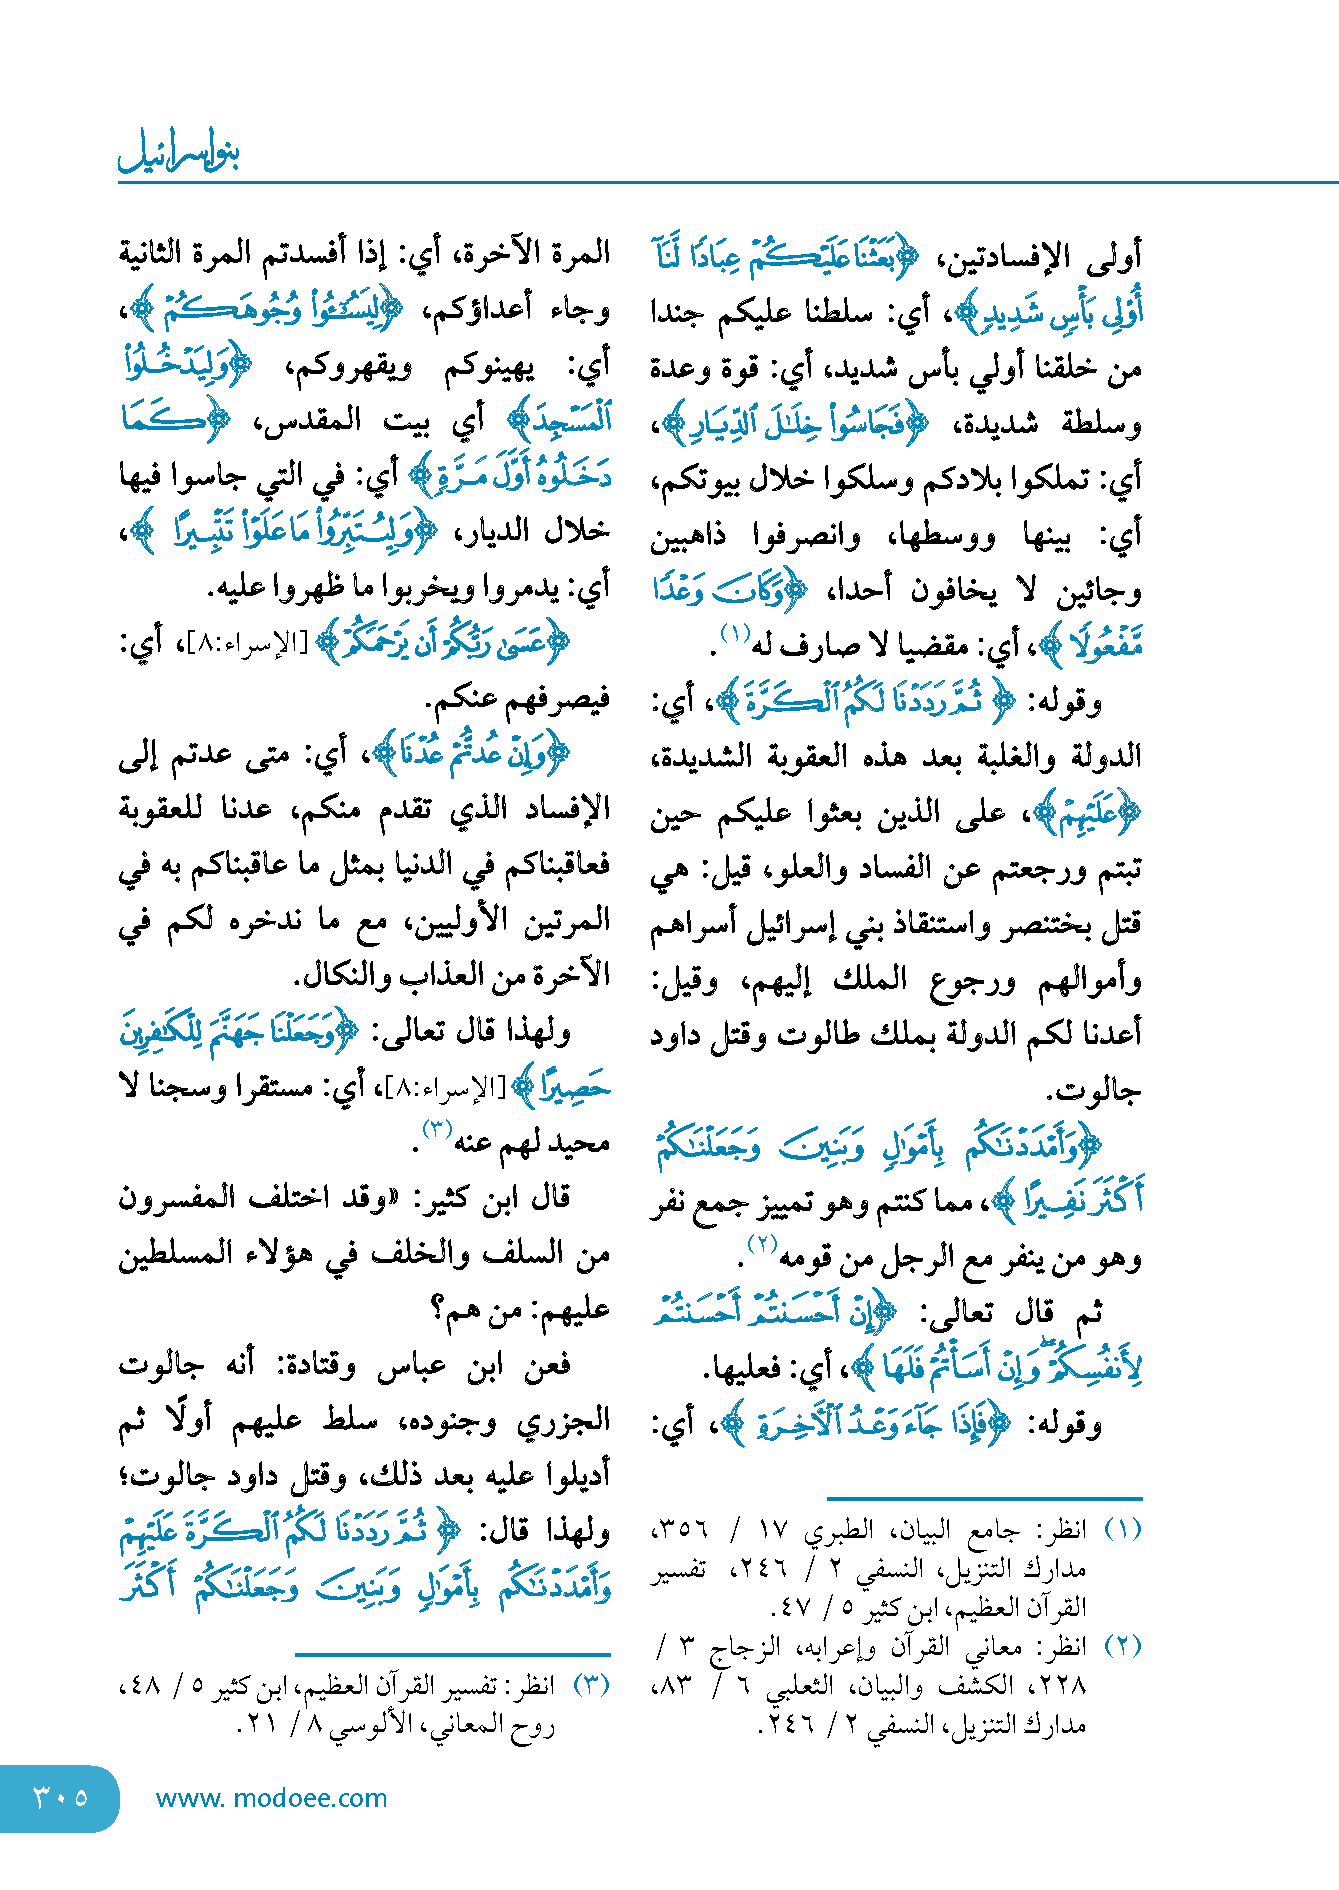 بنو إسرائيل
أولى الإفسادتين، ﴿بَعَثْنَا عَلَيْكُمْ عِبَادًا لَّنَآ
أُوْلِي بَأْسٍ شَدِيدٍ﴾، أي: سلطنا عليكم جندا
من خلقنا أولي بأس شديد، أي: قوة وعدة
وسلطة شديدة، ﴿فَجَاسُواْ خِلَٰلَ ٱلدِّيَارِ﴾،
أي: تملكوا بلادكم وسلكوا خلال بيوتكم،
أي: بينها ووسطها، وانصرفوا ذاهبين
وجائين لا يخافون أحدا، ﴿وَكَانَ وَعْدًا
مَّفْعُولًا﴾، أي: مقضيا لا صارف له(١).
وقوله: ﴿ثُمَّ رَدَدْنَا لَكُمُ ٱلْكَرَّةَ﴾، أي:
الدولة والغلبة بعد هذه العقوبة الشديدة،
﴿عَلَيْهِمْ﴾، على الذين بعثوا عليكم حين
تبتم ورجعتم عن الفساد والعلو، قيل: هي
قتل بختنصر واستنقاذ بني إسرائيل أسراهم
وأموالهم ورجوع الملك إليهم، وقيل:
أعدنا لكم الدولة بملك طالوت وقتل داود
جالوت.
﴿وَأَمْدَدْنَٰكُم بِأَمْوَٰلٍ وَبَنِينَ وَجَعَلْنَٰكُمْ
أَكْثَرَ نَفِيرًا﴾، مما كنتم وهو تمييز جمع نفر
وهو من ينفر مع الرجل من قومه(٢).
ثم قال تعالى: ﴿إِنْ أَحْسَنتُمْ أَحْسَنتُمْ
لِأَنفُسِكُمْ ۖ وَإِنْ أَسَأْتُمْ فَلَهَا﴾، أي: فعليها.
وقوله: ﴿فَإِذَا جَآءَ وَعْدُ ٱلْأٓخِرَةِ﴾، أي:
(١) انظر: جامع البيان، الطبري ١٧ / ٣٥٦،
مدارك التنزيل، النسفي ٢ / ٢٤٦، تفسير
القرآن العظيم، ابن كثير ٥ / ٤٧.
(٢) انظر: معاني القرآن وإعرابه، الزجاج ٣ /
٢٢٨، الكشف والبيان، الثعلبي ٦ / ٨٣،
مدارك التنزيل، النسفي ٢ / ٢٤٦.
المرة الآخرة، أي: إذا أفسدتم المرة الثانية
وجاء أعداؤكم، ﴿لِيَسُـُٔواْ وُجُوهَكُمْ﴾،
أي: يهينوكم ويقهروكم، ﴿وَلِيَدْخُلُواْ
ٱلْمَسْجِدَ﴾ أي بيت المقدس، ﴿كَمَا
دَخَلُوهُ أَوَّلَ مَرَّةٍ﴾ أي: في التي جاسوا فيها
خلال الديار، ﴿وَلِيُتَبِّرُواْ مَا عَلَوْاْ تَتْبِيرًا﴾،
أي: يدمروا ويخربوا ما ظهروا عليه.
﴿عَسَىٰ رَبُّكُمْ أَن يَرْحَمَكُمْ﴾ [الإسراء:٨]، أي:
فيصرفهم عنكم.
﴿وَإِنْ عُدتُّمْ عُدْنَا﴾، أي: متى عدتم إلى
الإفساد الذي تقدم منكم، عدنا للعقوبة
فعاقبناكم في الدنيا بمثل ما عاقبناكم به في
المرتين الأوليين، مع ما ندخره لكم في
الآخرة من العذاب والنكال.
ولهذا قال تعالى: ﴿وَجَعَلْنَا جَهَنَّمَ لِلْكَٰفِرِينَ
حَصِيرًا﴾ [الإسراء:٨]، أي: مستقرا وسجنا لا
محيد لهم عنه(٣).
قال ابن كثير: «وقد اختلف المفسرون
من السلف والخلف في هؤلاء المسلطين
عليهم: من هم؟
فعن ابن عباس وقتادة: أنه جالوت
الجزري وجنوده، سلط عليهم أولًا ثم
أديلوا عليه بعد ذلك، وقتل داود جالوت؛
ولهذا قال: ﴿ثُمَّ رَدَدْنَا لَكُمُ ٱلْكَرَّةَ عَلَيْهِمْ
وَأَمْدَدْنَٰكُم بِأَمْوَٰلٍ وَبَنِينَ وَجَعَلْنَٰكُمْ أَكْثَرَ
(٣) انظر: تفسير القرآن العظيم، ابن كثير ٥ / ٤٨،
روح المعاني، الألوسي ٨ / ٢١.
www. modoee.com
٣٠٥